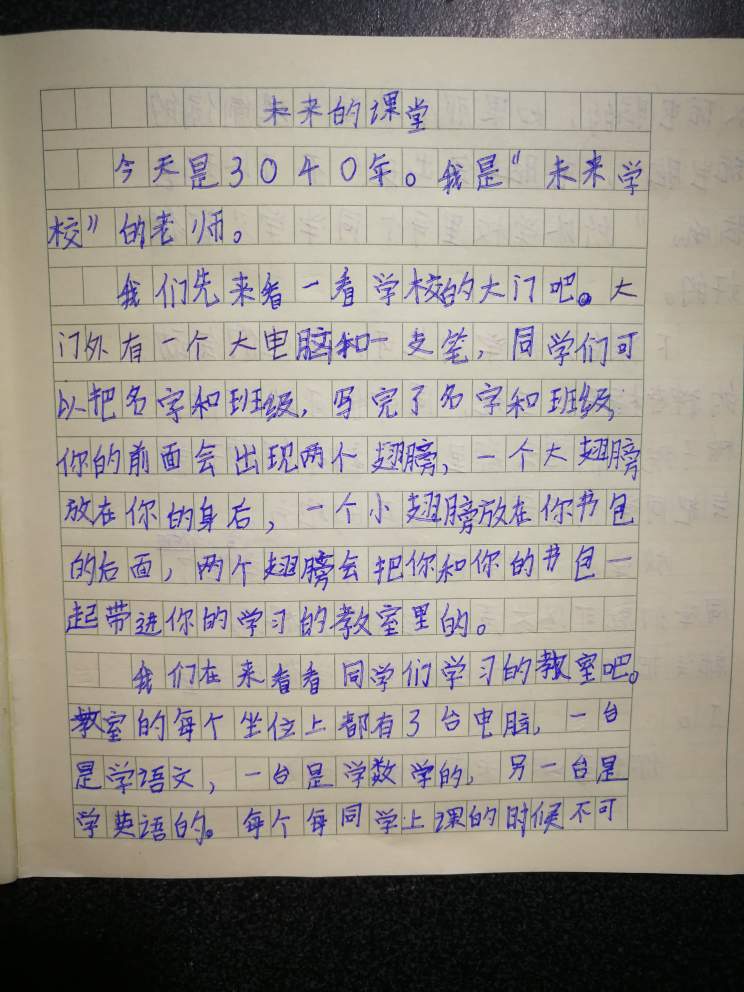 未来的课堂
今天是3040年。我是"未来学
校"的老师。
我们先来看一看学校的大门吧。大
门外有一个大电脑和一支笔，同学们可
以把名字和班级，写完了名字和班级，
你的前面会出现两个翅膀，一个大翅膀
放在你的身后，一个小翅膀放在你书包
的后面，两个翅膀会把你和你的书包一
起带进你的学习的教室里的。
我们在来看看同学们学习的教室吧。
教室的每个坐位上都有3台电脑，一台
是学语文，一台是学数学的，另一台是
学英语的。每个每同学上课的时候不可